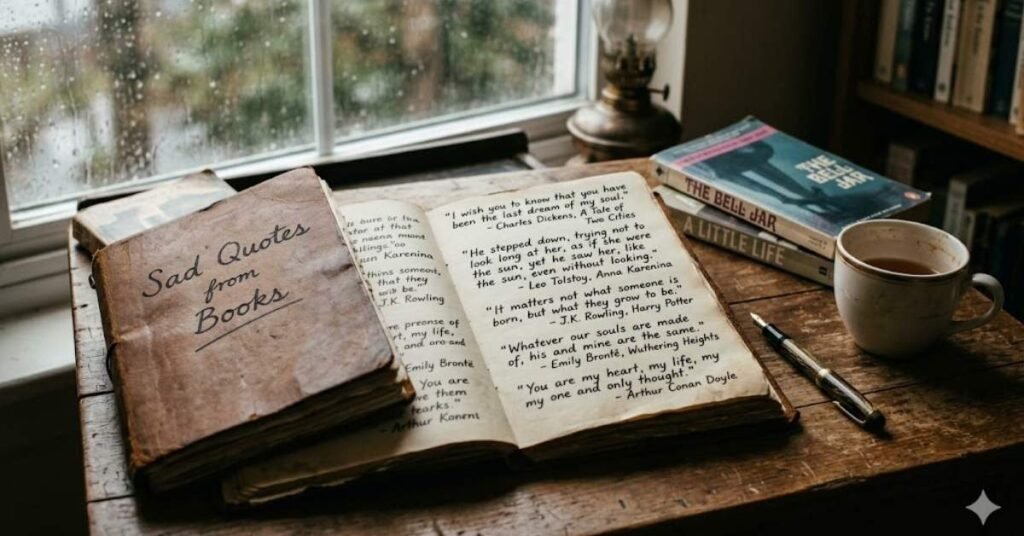 Sad Quotes
from
Books
Karenina
that they
will be."
J.K. Rowling
my life,
Emily Brontë
You are
them
- Arthur Konent
"I wish you to know that you have
been the last dream of my soul."
- Charles Dickens, A Tale of
Two Cities
"He stepped down, trying not to
look long at her, as if she were
the sun, yet he saw her, like
the sun, even without looking.
- Leo Tolstoy, Anna Karenina
"It matters not what someone is
born, but what they grow to be."
- J.K. Rowling, Harry Potter
"Whatever our souls are made
of, his and mine are the same."
- Emily Brontë, Wuthering Heights
"You are my heart, my life, my
my one and only thought."
- Arthur Conan Doyle
THE
BELL
JAR
THE BELL JAR
A LITTLE LIFE